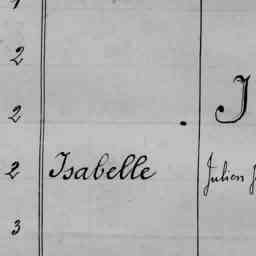 2
2 J
2 Isabelle Julien
3